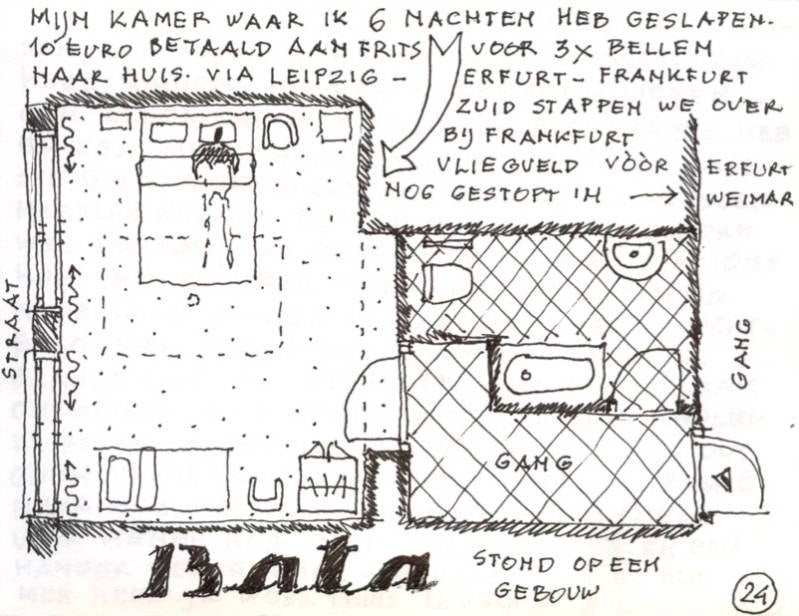 MIJN KAMER WAAR IK 6 NACHTEN HEB GESLAPEN.
10 EURO BETAALD AAN FRITS VOOR 3X BELLEN
NAAR HUIS. VIA LEIPZIG - ERFURT - FRANKFURT
ZUID STAPPEN WE OVER
BIJ FRANKFURT
VLIEGVELD VÒÒR ERFURT
NOG GESTOPT IN → WEIMAR
STRAAT
GANG
GANG
Bata
STOND OP EEN
GEBOUW
24